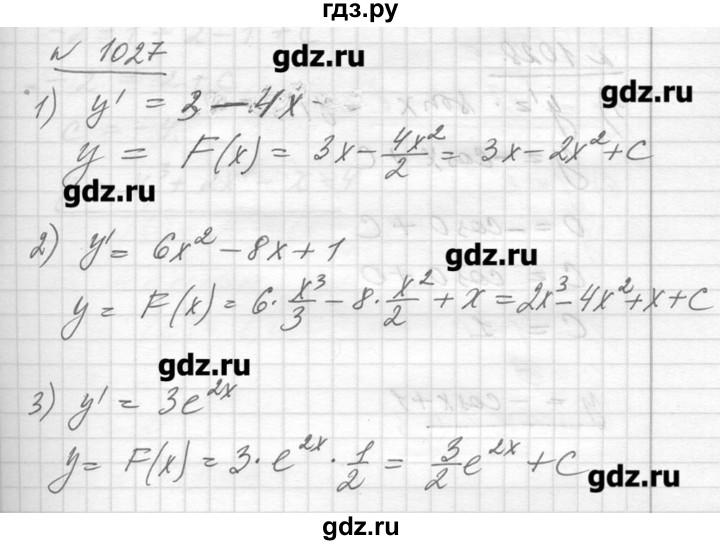 гдз.ру
№ 1027
gdz.ru
gdz.ru
1) y' = 3 - 4x
y = F(x) = 3x - 4x²/2 = 3x - 2x² + C
gdz.ru
2) y' = 6x² - 8x + 1
gdz.ru
y = F(x) = 6 · x³/3 - 8 · x²/2 + x = 2x³ - 4x² + x + C
gdz.ru
3) y' = 3e^{2x}
y = F(x) = 3 · e^{2x} · 1/2 = 3/2 e^{2x} + C
gdz.ru
gdz.ru